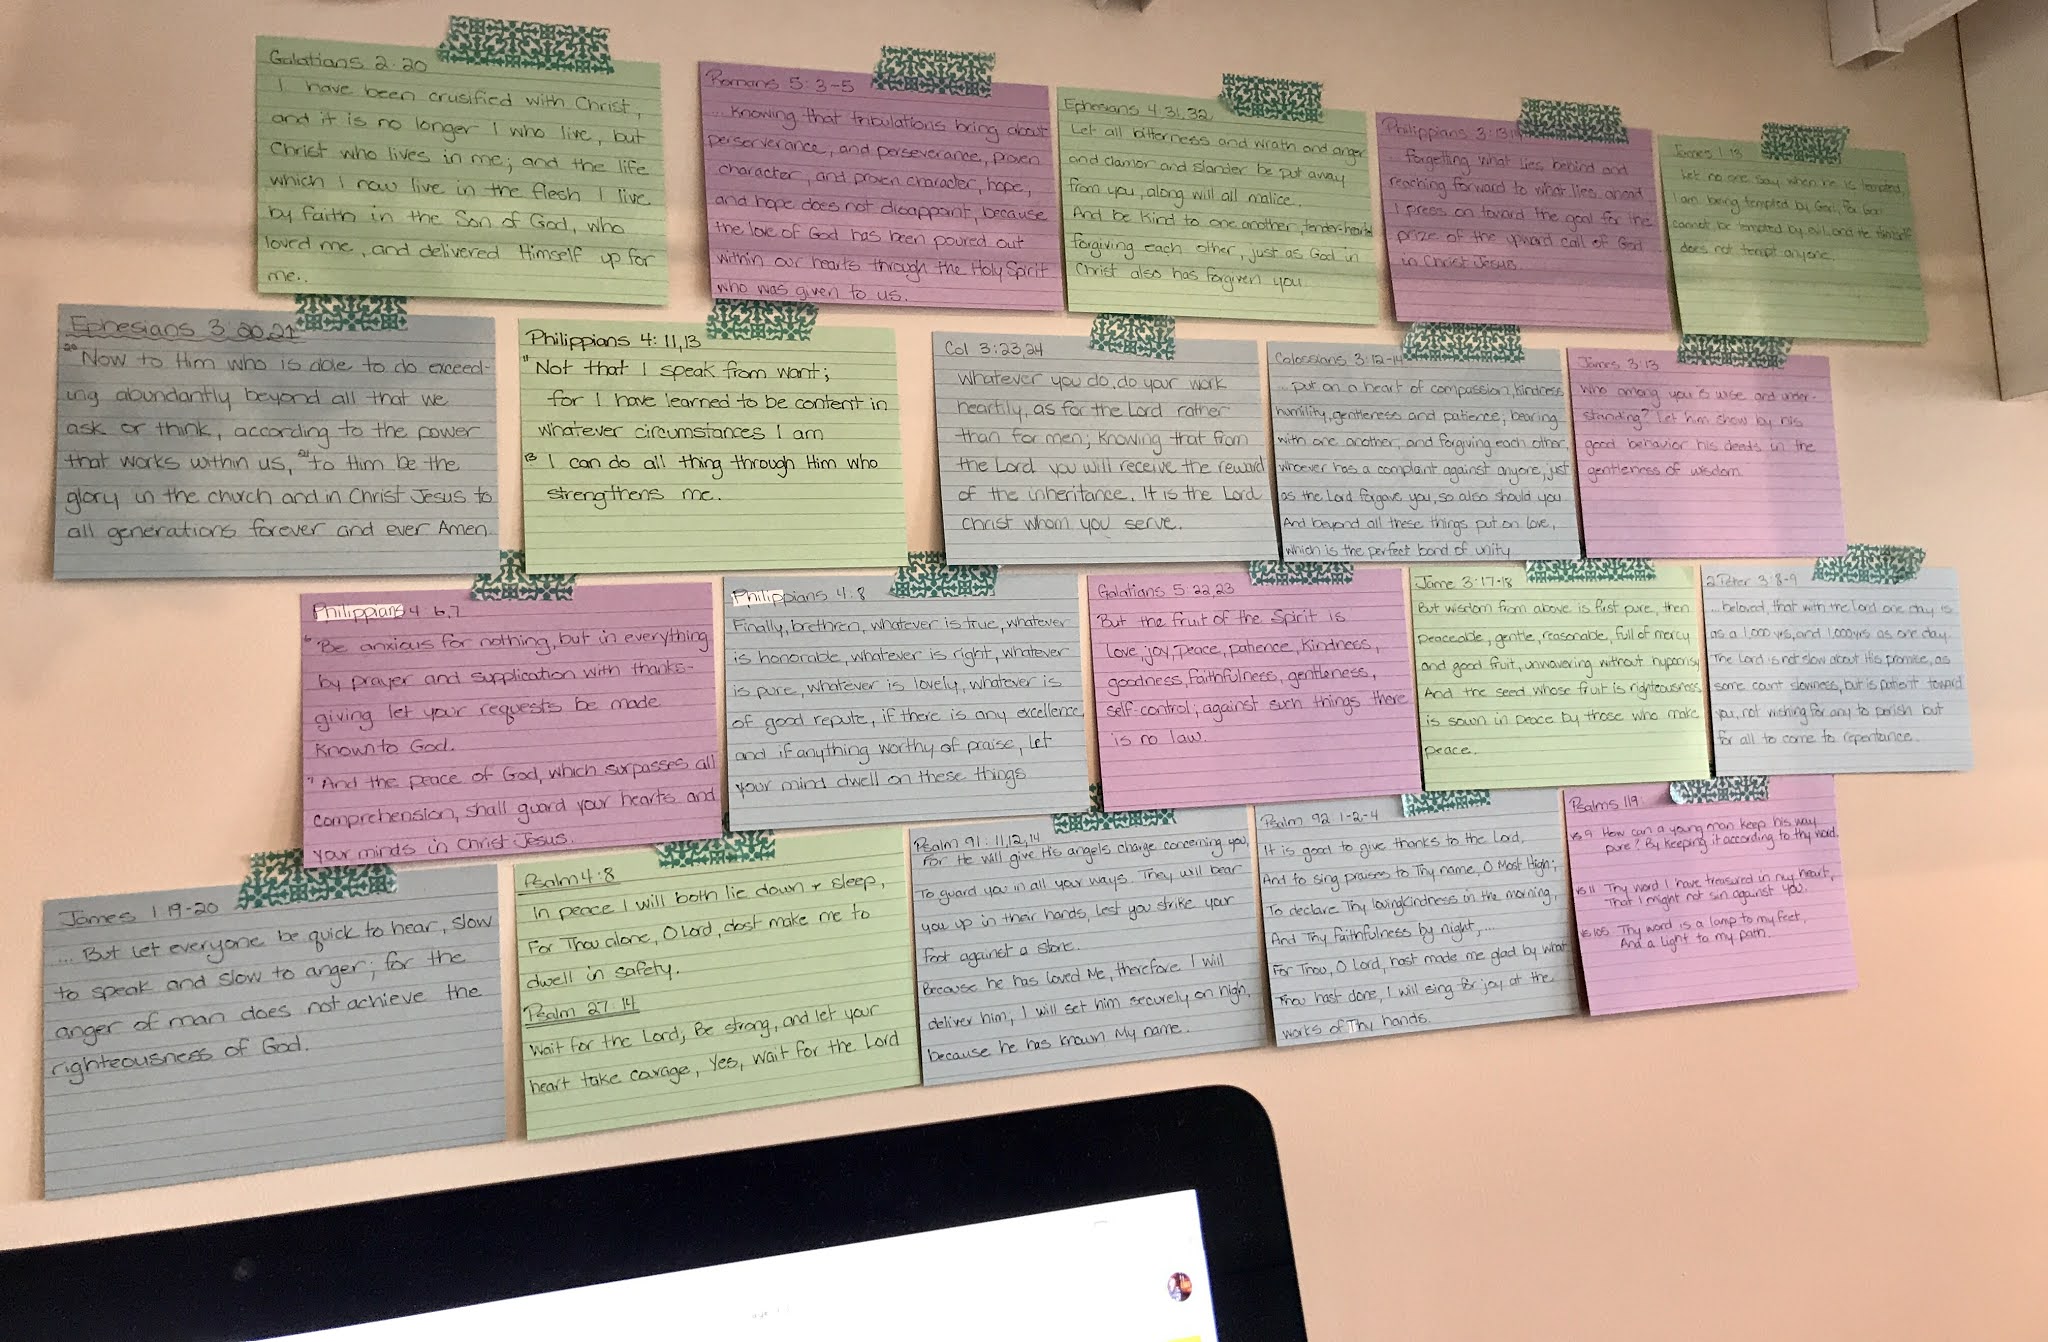 Galatians 2:20
I have been crusified with Christ,
and it is no longer I who live, but
Christ who lives in me; and the life
which I now live in the flesh I live
by faith in the Son of God, who
loved me, and delivered Himself up for
me.
Romans 5:3-5
...Knowing that tribulations bring about
perserverance, and perseverance, proven
character, and proven character, hope,
and hope does not disappoint, because
the love of God has been poured out
within our hearts through the Holy Spirit
who was given to us.
Ephesians 4:31,32
Let all bitterness and wrath and anger
and clamor and slander be put away
from you, along will all malice.
And be kind to one another, tender-hearted
forgiving each other, just as God in
Christ also has forgiven you
Philippians 3:13,
...forgetting what lies behind and
reaching forward to what lies ahead
I press on toward the goal for the
prize of the upward call of God
in Christ Jesus.
James 1:13
Let no one say when he is tempted,
I am being tempted by God, for God
cannot be tempted by evil, and He Himself
does not tempt anyone.
Ephesians 3:20,21
20 Now to Him who is able to do exceed-
ing abundantly beyond all that we
ask or think, according to the power
that works within us, 21 to Him be the
glory in the church and in Christ Jesus to
all generations forever and ever Amen.
Philippians 4:11,13
11 Not that I speak from want;
for I have learned to be content in
whatever circumstances I am
13 I can do all thing through Him who
strengthens me.
Col 3:23,24
Whatever you do, do your work
heartily, as for the Lord rather
than for men; Knowing that from
the Lord you will receive the reward
of the inheritance. It is the Lord
Christ whom you serve.
Colossians 3:12-14
...put on a heart of compassion, kindness
humility, gentleness and patience; bearing
with one another, and forgiving each other,
whoever has a complaint against anyone, just
as the Lord forgave you, so also should you
And beyond all these things put on love,
which is the perfect bond of unity
James 3:13
Who among you is wise and under-
standing? Let him show by his
good behavior his deeds in the
gentleness of wisdom
Philippians 4:6,7
6 Be anxious for nothing, but in everything
by prayer and supplication with thanks-
giving let your requests be made
known to God.
7 And the peace of God, which surpasses all
comprehension, shall guard your hearts and
your minds in Christ Jesus.
Philippians 4:8
Finally, brethren, whatever is true, whatever
is honorable, whatever is right, whatever
is pure, whatever is lovely, whatever is
of good repute, if there is any excellence
and if anything worthy of praise, let
your mind dwell on these things
Galatians 5:22,23
But the fruit of the Spirit is
love, joy, peace, patience, kindness,
goodness, faithfulness, gentleness,
self-control; against such things there
is no law.
Jame 3:17-18
But wisdom from above is first pure, then
peaceable, gentle, reasonable, full of mercy
and good fruit, unwavering without hypocrisy
And the seed whose fruit is righteousness
is sown in peace by those who make
peace.
2 Peter 3:8-9
...beloved, that with the Lord one day is
as a 1,000 yrs, and 1,000yrs as one day
The Lord is not slow about His promise, as
some count slowness, but is patient toward
you, not wishing for any to perish but
for all to come to repentance.
James 1:19-20
... But let everyone be quick to hear, slow
to speak and slow to anger; for the
anger of man does not achieve the
righteousness of God.
Psalm 4:8
In peace I will both lie down + sleep,
For Thou alone, O Lord, dost make me to
dwell in safety.
Psalm 27:14
Wait for the Lord; Be strong, and let your
heart take courage, Yes, wait for the Lord
Psalm 91:11,12,14
For He will give His angels charge concerning you,
To guard you in all your ways. They will bear
you up in their hands, Lest you strike your
foot against a stone.
Because he has loved Me, therefore I will
deliver him; I will set him securely on high,
because he has known My name.
Psalm 92:1-2-4
It is good to give thanks to the Lord,
And to sing praises to Thy name, O Most High;
To declare Thy lovingkindness in the morning,
And Thy faithfulness by night,...
For Thou, O Lord, hast made me glad by what
Thou hast done, I will sing for joy at the
works of Thy hands.
Psalms 119:
vs 9 How can a young man keep his way
pure? By keeping it according to thy word.
vs 11 Thy word I have treasured in my heart,
That I might not sin against You.
vs 105 Thy word is a lamp to my feet,
And a light to my path.